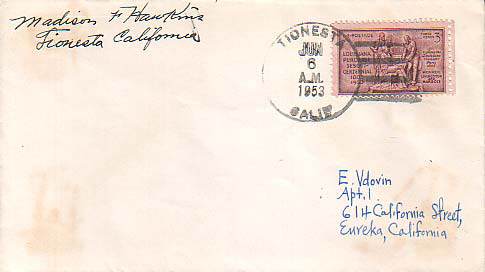 Madison F Hawkins
Tionesta California
TIONESTA
JUN
6
A.M.
1953
CALIF
U.S. POSTAGE
LOUISIANA
PURCHASE
SESQUI-
CENTENNIAL
1803
1953
3
E. Vdovin
Apt. 1
614 California Street,
Eureka, California